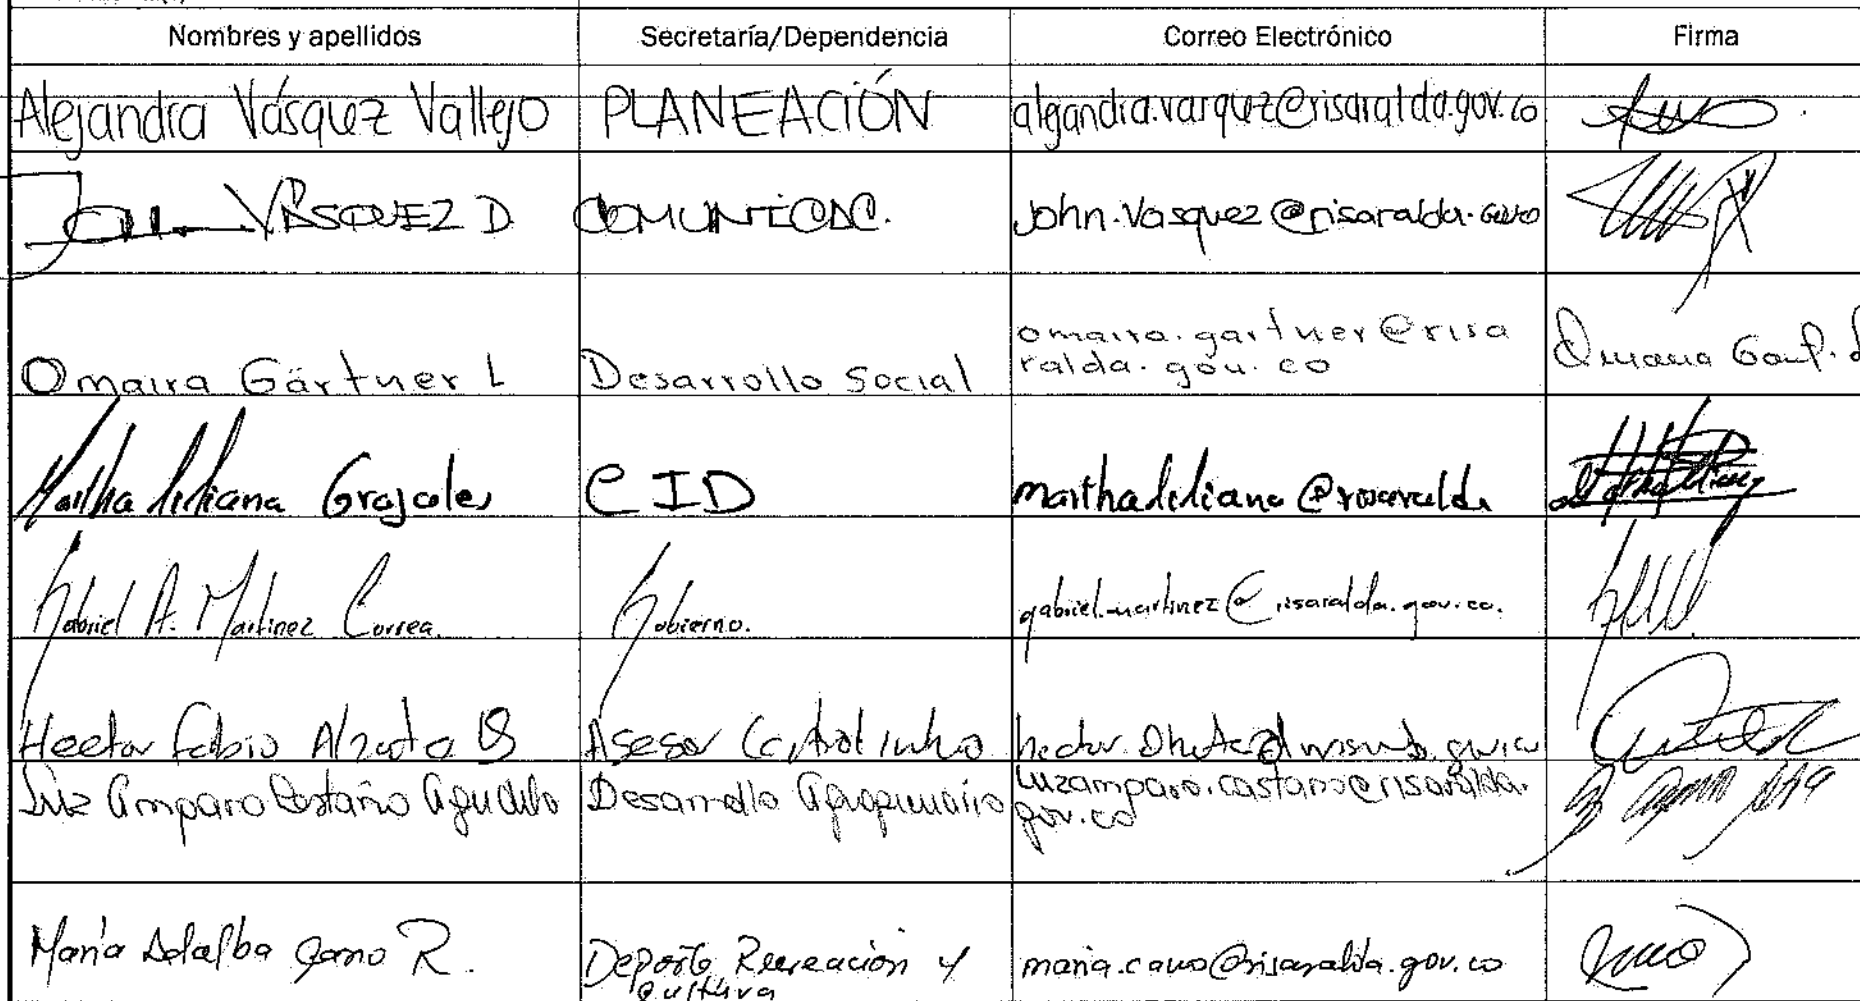 Nombres y apellidos Secretaría/Dependencia Correo Electrónico Firma
Alejandra Vásquez Vallejo PLANEACIÓN alejandra.vasquez@risaralda.gov.co
John VÁSQUEZ D. COMUNICAC. John.Vasquez@risaralda.gov.co
Omaira Gärtner L Desarrollo Social omaira.gartner@risa
ralda.gov.co
Martha Liliana Grajales CID marthaliliana@risaralda
Gabriel A. Martinez Correa. Gobierno. gabriel.martinez@risaralda.gov.co.
Hector Fabio Alzate B Asesor
Luz Amparo Castaño Agudelo Desarrollo Agropecuario luzamparo.castano@risaralda.
gov.co
María Adalba Cano R. Deporte Recreación y maria.cano@risaralda.gov.co
cultura